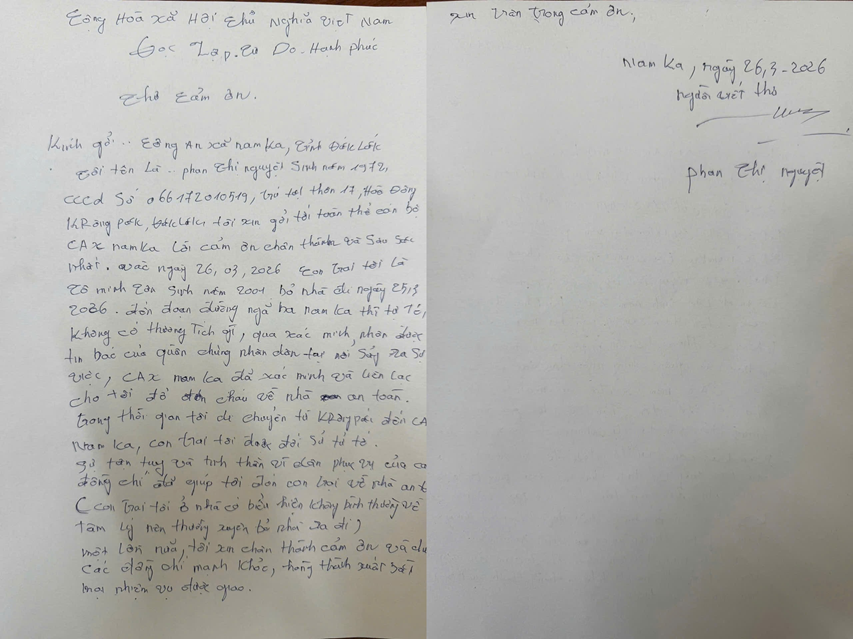 Cộng Hòa xã Hội chủ Nghĩa Việt Nam
Độc Lập. Tự Do. Hạnh phúc
Thư Cảm ơn.
Kính gởi.. Công An xã nam Ka, tỉnh Đắk Lắk
Tôi tên Là.. phan Thị nguyệt Sinh năm 1972,
CCCD Số 066172010519, trú tại thôn 17, Hòa Đông
KRông pắk, Đắk Lắk, tôi xin gởi tới toàn thể cán bộ
CAX nam Ka lời cảm ơn chân thành và Sâu Sắc
nhất. vào ngày 26, 03, 2026 Con trai tôi Là
minh Sinh năm 2001 bỏ nhà đi ngày 25,3
2026. đến đoạn đường ngã ba nam Ka thì tự Té,
Không có thương Tích gì, qua xác minh, nhận được
tin báo của quần chúng nhân dân tại nơi Sảy Ra Sự
việc, CAX nam Ka đã xác minh và Liên Lạc
cho tôi để đón cháu về nhà an toàn.
trong thời gian tôi di chuyển từ KRông pắk đến CA
Nam Ka, con trai tôi được đối Sử tử tế.
Sự tận tụy và tinh thần vì dân phục vụ của cá
đồng chí đã giúp tôi đón con trai về nhà an t
( con trai tôi ở nhà có biểu hiện không bình thường về
tâm lý nên thường xuyên bỏ nhà ra đi )
một lần nữa, tôi xin chân thành cảm ơn và
các đồng chí mạnh khỏe, hoàng thành xuất Sắc
mọi nhiệm vụ được giao.
xin trân trọng cảm ơn,
Nam Ka, ngày 26, 3 - 2026
người viết thơ
phan Thị nguyệt